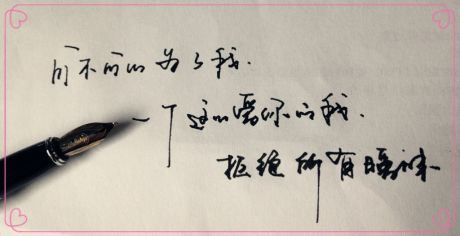 可不可以为了我.
一个这么需你的我.
拒绝所有暧昧